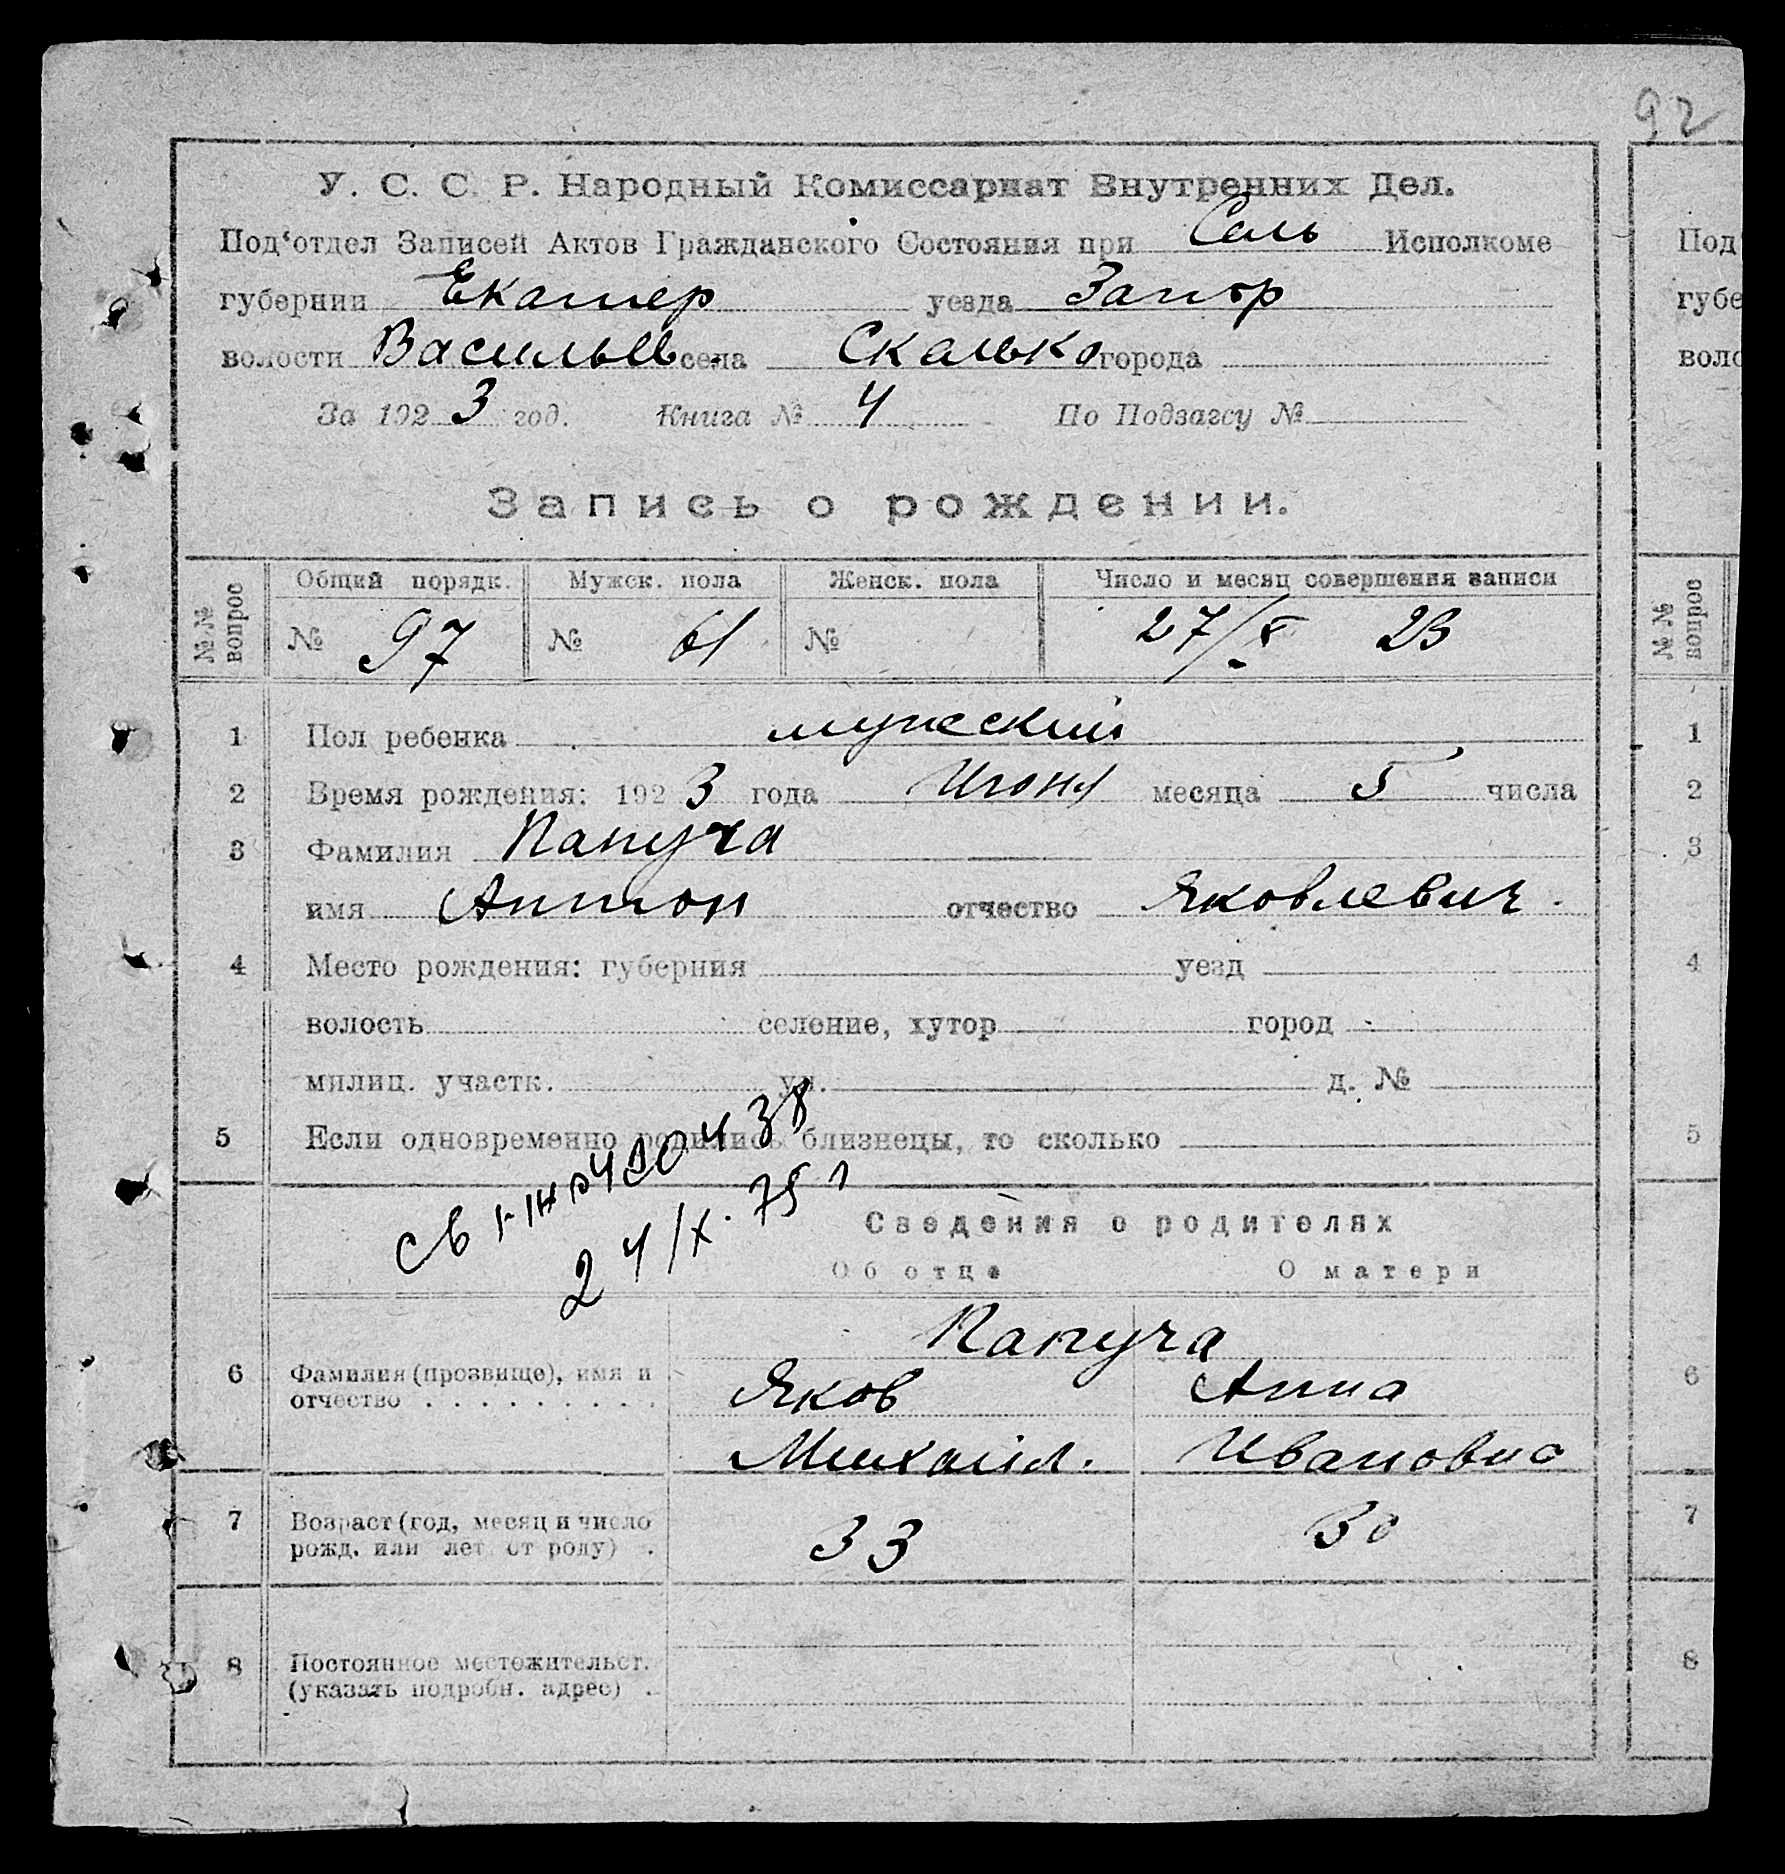 92
У. С. С. Р. Народный Комиссариат Внутренних Дел.
Под‘отдел Записей Актов Гражданского Состояния при Сель Исполкоме
губернии Екатер уезда Запор
волости Васильев села Скалько города
За 1923 год. Книга № 4 По Подзагсу №
Запись о рождении.
№№ вопрос Общий порядк. Мужск. пола Женск. пола Число и месяц совершения записи
№ 97 № 61 № 27/X 23
1 Пол ребенка мужеский
2 Время рождения: 1923 года Июня месяца 5 числа
3 Фамилия Папуча
имя Антон отчество Яковлевич.
4 Место рождения: губерния уезд
волость селение, хутор город
милиц. участк. ул. д. №
5 Если одновременно родились близнецы, то сколько
24/X. 75
Сведения о родителях
Об отце О матери
Папуча
6 Фамилия (прозвище), имя и Яков Анна
отчество Михаил. Ивановна
7 Возраст (год, месяц и число 33 30
рожд. или лет от роду)
8 Постоянное местожительст.
(указать подробн. адрес)
Под
губе
воло
№№ вопрос
1
2
3
4
5
6
7
8